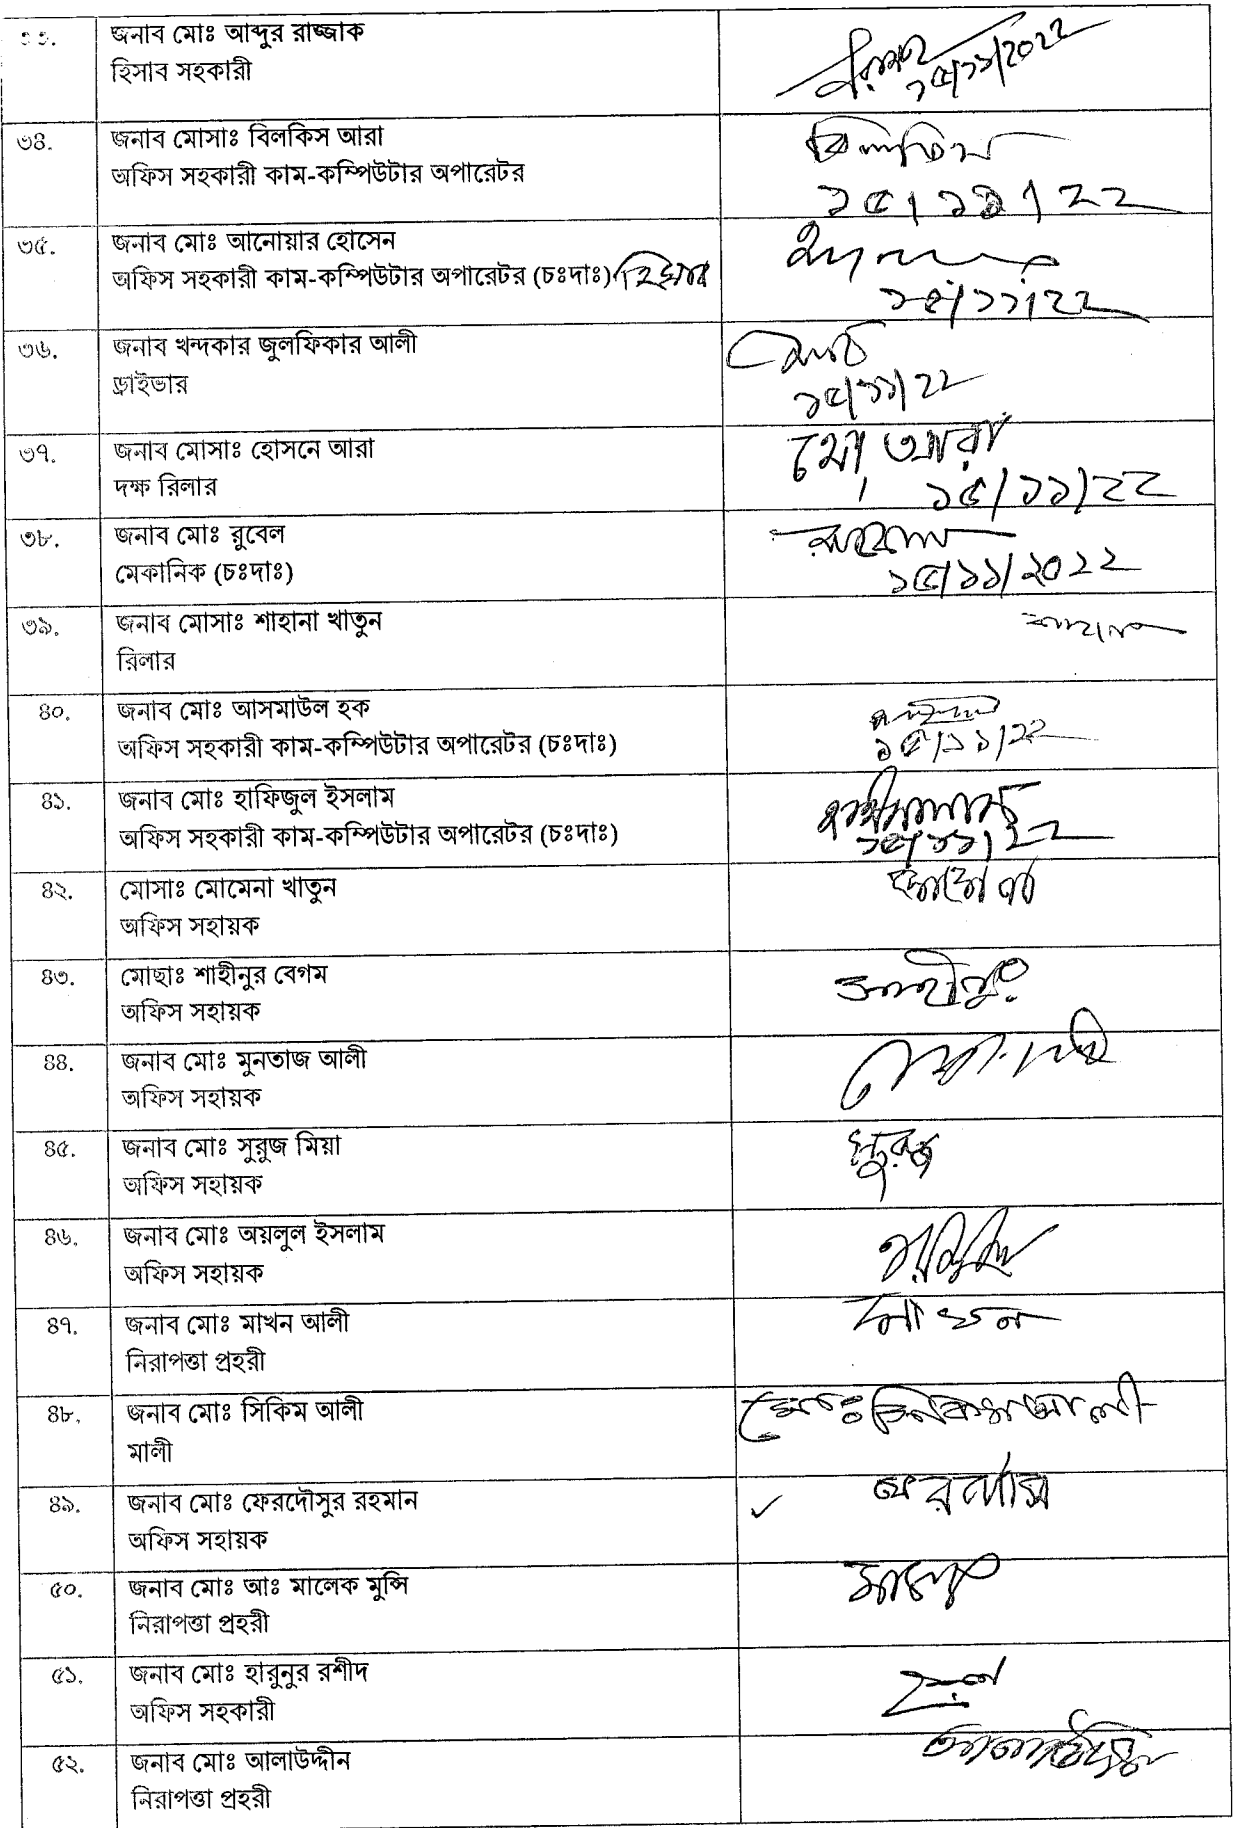 জনাব মোঃ আব্দুর রাজ্জাক
হিসাব সহকারী
১৫/১১/2022
৩৪.
জনাব মোসাঃ বিলকিস আরা
অফিস সহকারী কাম-কম্পিউটার অপারেটর
বিলকিস
১৫/১১/22
৩৫.
জনাব মোঃ আনোয়ার হোসেন
অফিস সহকারী কাম-কম্পিউটার অপারেটর (চঃদাঃ)
১৫/১১/22
৩৬.
জনাব খন্দকার জুলফিকার আলী
ড্রাইভার
১৫/১১/22
৩৭.
জনাব মোসাঃ হোসনে আরা
দক্ষ রিলার
১৫/১১/২২
৩৮.
জনাব মোঃ রুবেল
মেকানিক (চঃদাঃ)
১৫/১১/২০২২
৩৯.
জনাব মোসাঃ শাহানা খাতুন
রিলার
শাহানা
৪০.
জনাব মোঃ আসমাউল হক
অফিস সহকারী কাম-কম্পিউটার অপারেটর (চঃদাঃ)
১৫/১১/২২
৪১.
জনাব মোঃ হাফিজুল ইসলাম
অফিস সহকারী কাম-কম্পিউটার অপারেটর (চঃদাঃ)
১৫/১১/২২
৪২.
মোসাঃ মোমেনা খাতুন
অফিস সহায়ক
৪৩.
মোছাঃ শাহীনুর বেগম
অফিস সহায়ক
শাহীনুর
৪৪.
জনাব মোঃ মুনতাজ আলী
অফিস সহায়ক
৪৫.
জনাব মোঃ সুরুজ মিয়া
অফিস সহায়ক
সুরুজ
৪৬.
জনাব মোঃ অয়লুল ইসলাম
অফিস সহায়ক
৪৭.
জনাব মোঃ মাখন আলী
নিরাপত্তা প্রহরী
মাখন
৪৮.
জনাব মোঃ সিকিম আলী
মালী
মোঃ সিকিম আলী
৪৯.
জনাব মোঃ ফেরদৌসুর রহমান
অফিস সহায়ক
৫০.
জনাব মোঃ আঃ মালেক মুন্সি
নিরাপত্তা প্রহরী
মালেক
৫১.
জনাব মোঃ হারুনুর রশীদ
অফিস সহকারী
৫২.
জনাব মোঃ আলাউদ্দীন
নিরাপত্তা প্রহরী
আলাউদ্দিন